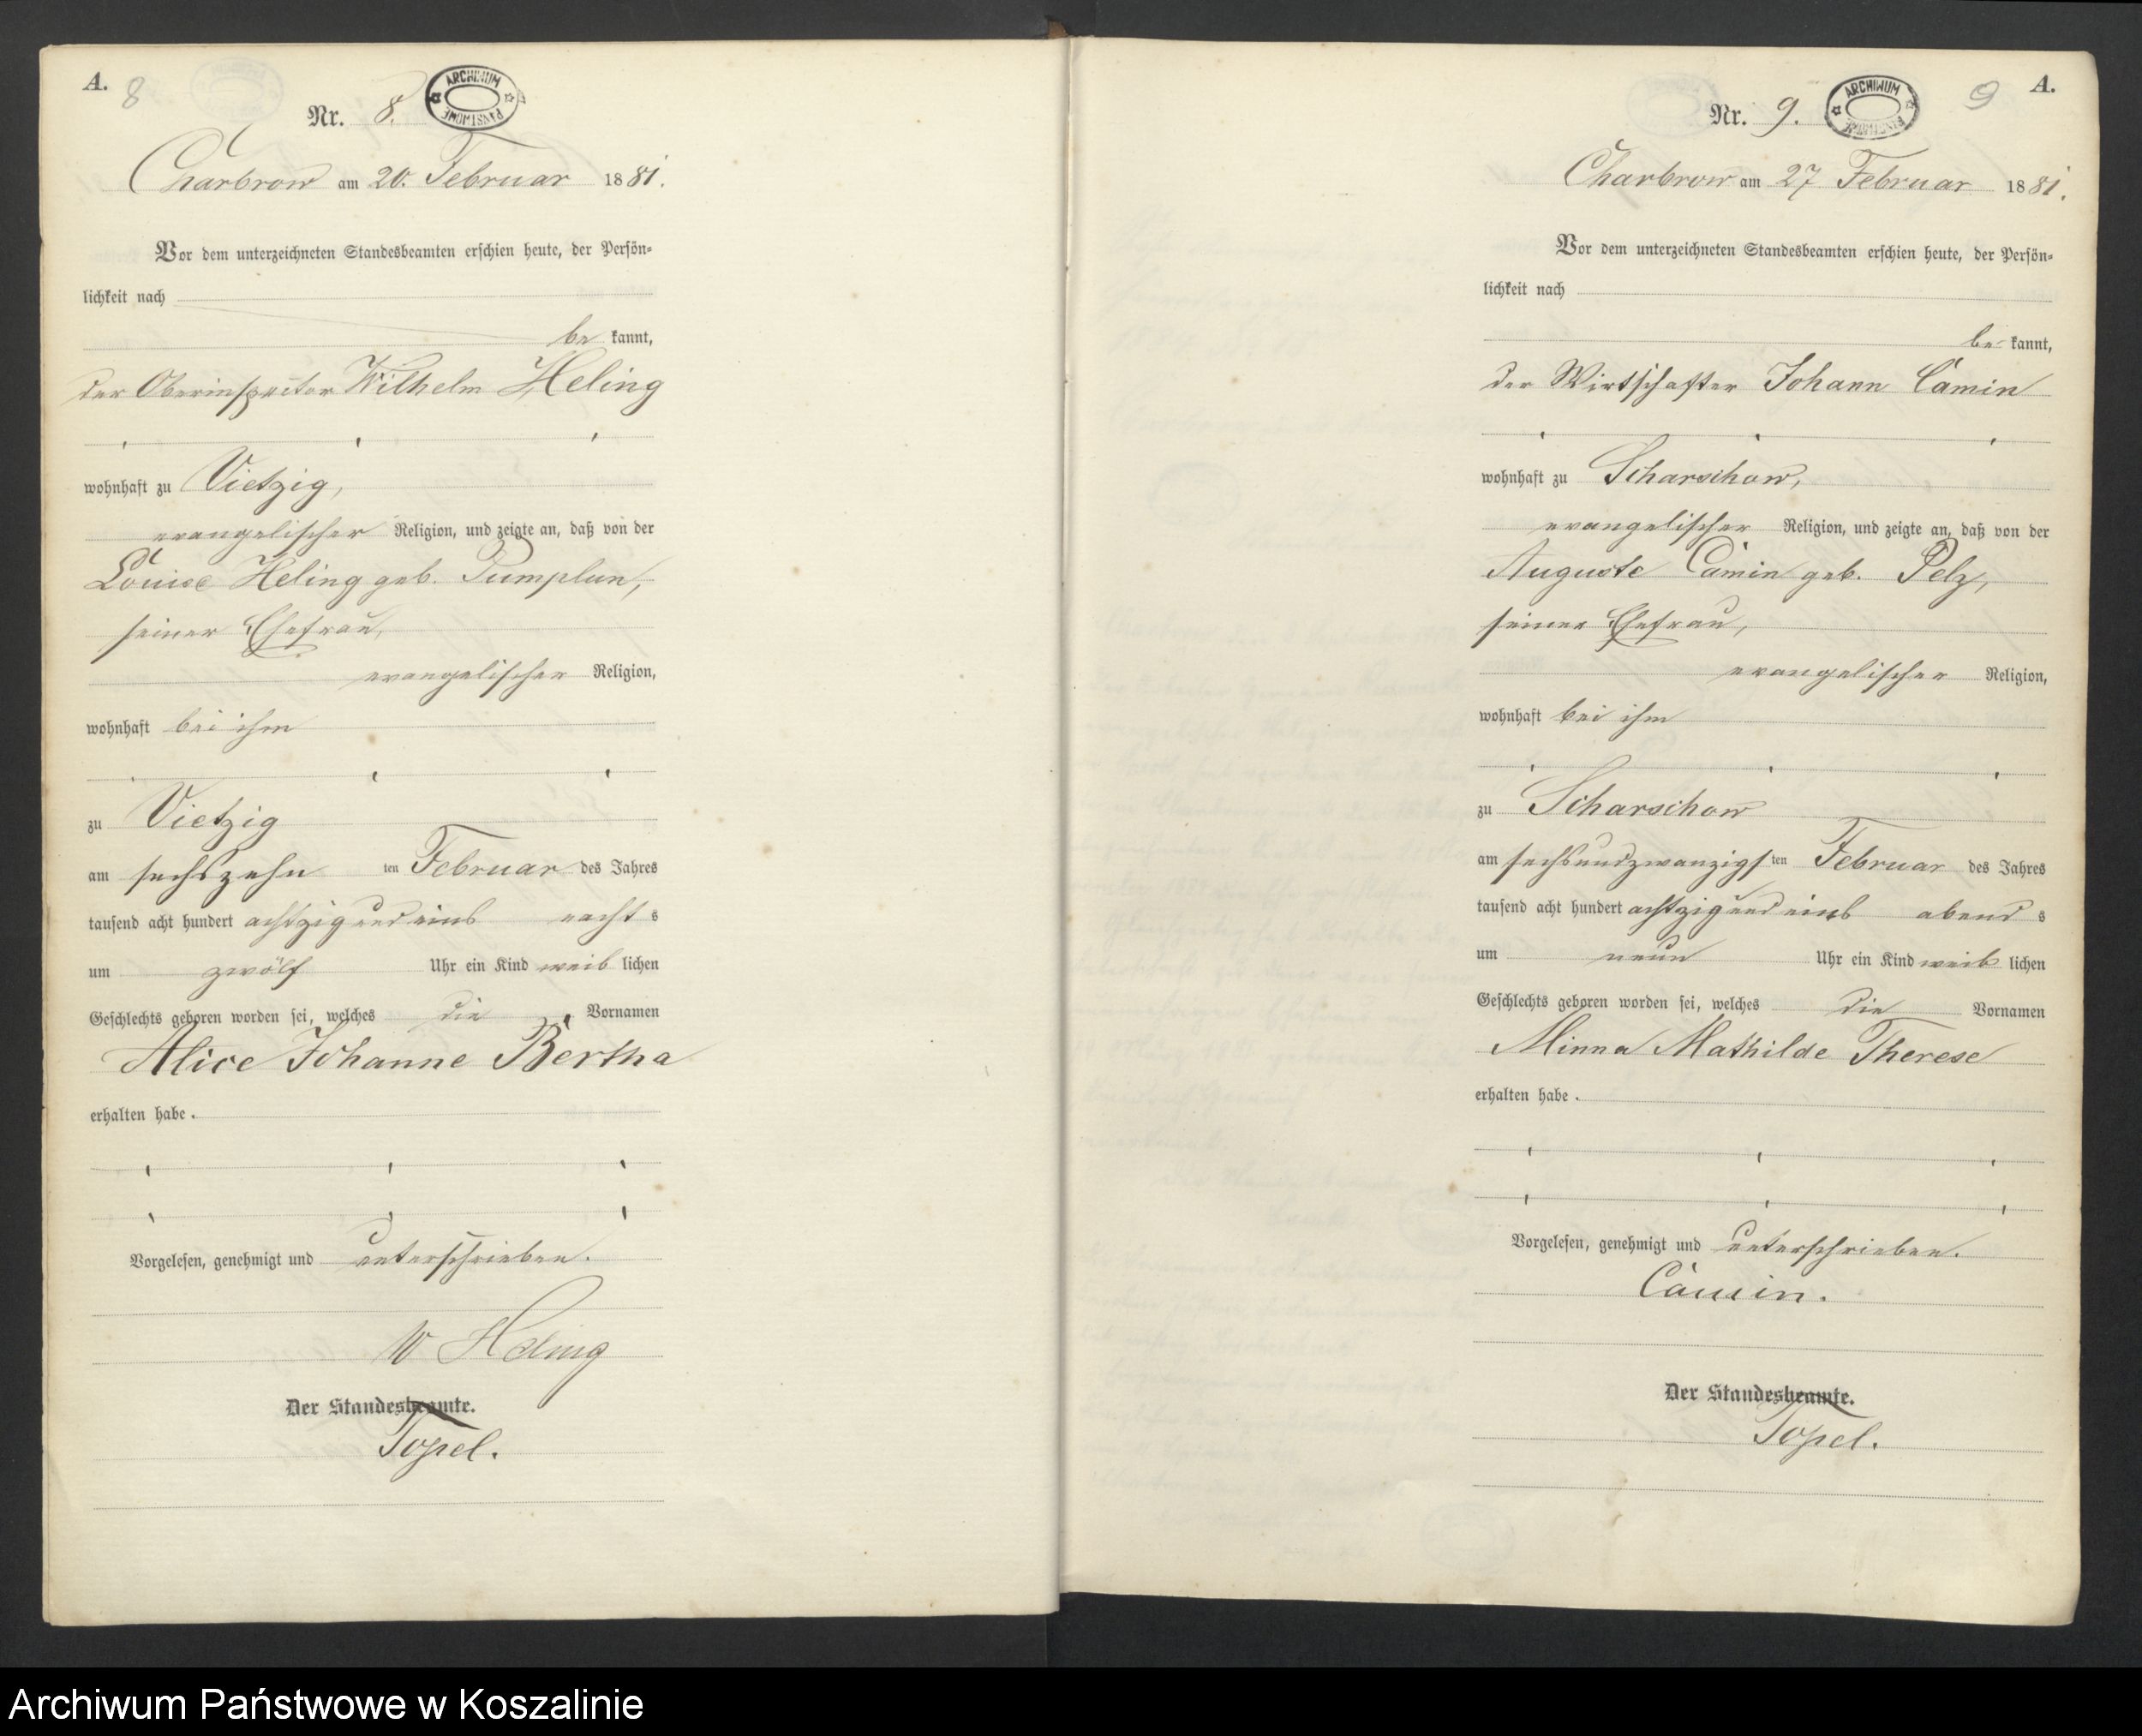 A.
8
Nr. 8.
ARCHIWUM PAŃSTWOWE
Charbrow am 20. Februar 1881.
Vor dem unterzeichneten Standesbeamten erschien heute, der Persön-
lichkeit nach
be kannt,
der Oberinspector Wilhelm Heling
wohnhaft zu Vietzig,
evangelischer Religion, und zeigte an, daß von der
Louise Heling geb. Pumplun,
seiner Ehefrau,
evangelischer Religion,
wohnhaft bei ihm
zu Vietzig
am sechszehn ten Februar des Jahres
tausend acht hundert achtzig und eins nacht s
um zwölf Uhr ein Kind weib lichen
Geschlechts geboren worden sei, welches die Vornamen
Alice Johanne Bertha
erhalten habe.
Vorgelesen, genehmigt und unterschrieben.
W Heling
Der Standesbeamte.
Topel.
9
A.
Nr. 9.
ARCHIWUM PAŃSTWOWE
Charbrow am 27 Februar 1881.
Vor dem unterzeichneten Standesbeamten erschien heute, der Persön-
lichkeit nach
be kannt,
der Wirtschafter Johann Camin
wohnhaft zu Scharschow,
evangelischer Religion, und zeigte an, daß von der
Auguste Camin geb. Pelz,
seiner Ehefrau,
evangelischer Religion,
wohnhaft bei ihm
zu Scharschow
am sechsundzwanzigs ten Februar des Jahres
tausend acht hundert achtzig und eins abend s
um neun Uhr ein Kind weib lichen
Geschlechts geboren worden sei, welches die Vornamen
Minna Mathilde Therese
erhalten habe.
Vorgelesen, genehmigt und unterschrieben.
Camin.
Der Standesbeamte.
Topel.
Archiwum Państwowe w Koszalinie